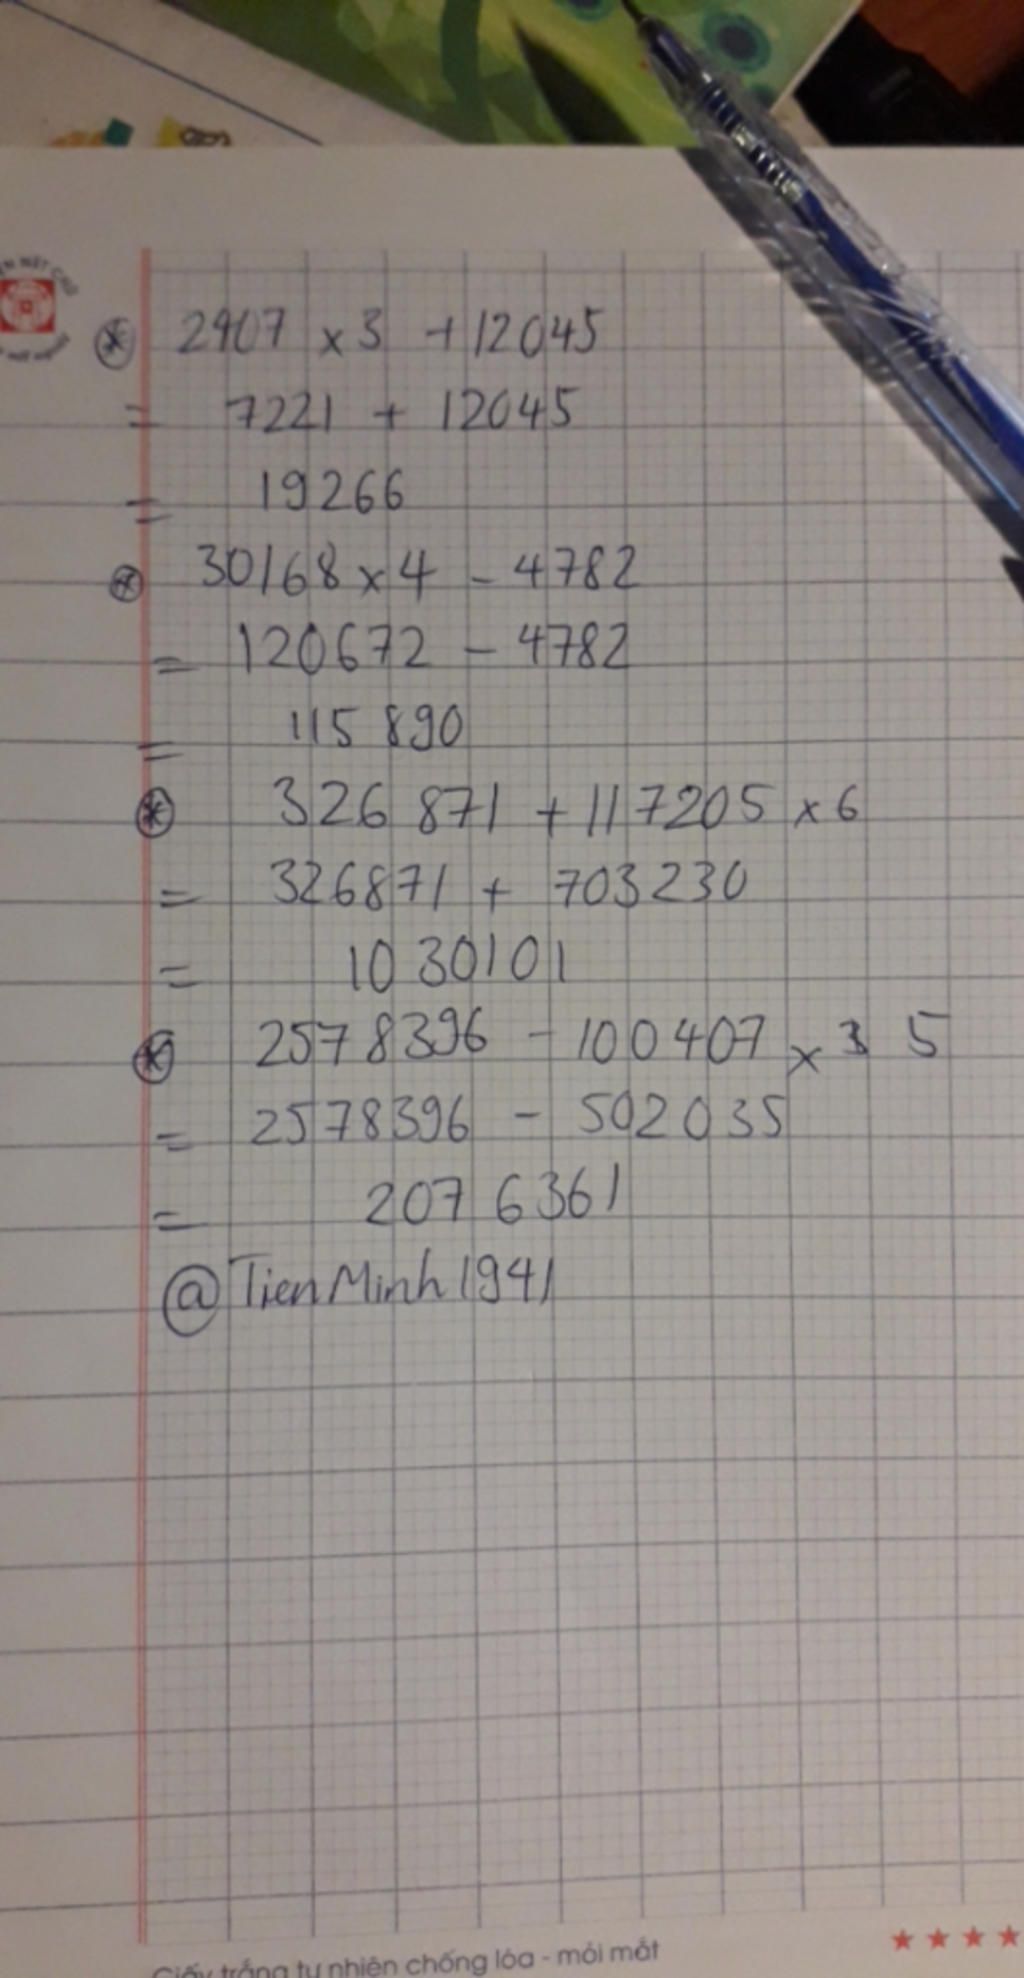 ⊛ 2407 x 3 + 12045
= 7221 + 12045
= 19266
⊛ 30168 x 4 - 4782
= 120672 - 4782
= 115890
⊛ 326871 + 117205 x 6
= 326871 + 703230
= 1030101
⊛ 2578396 - 100407 x 3 5
= 2578396 - 502035
= 2076361
@TienMinh1941
Giấy trắng tự nhiên chống lóa - mỏi mắt